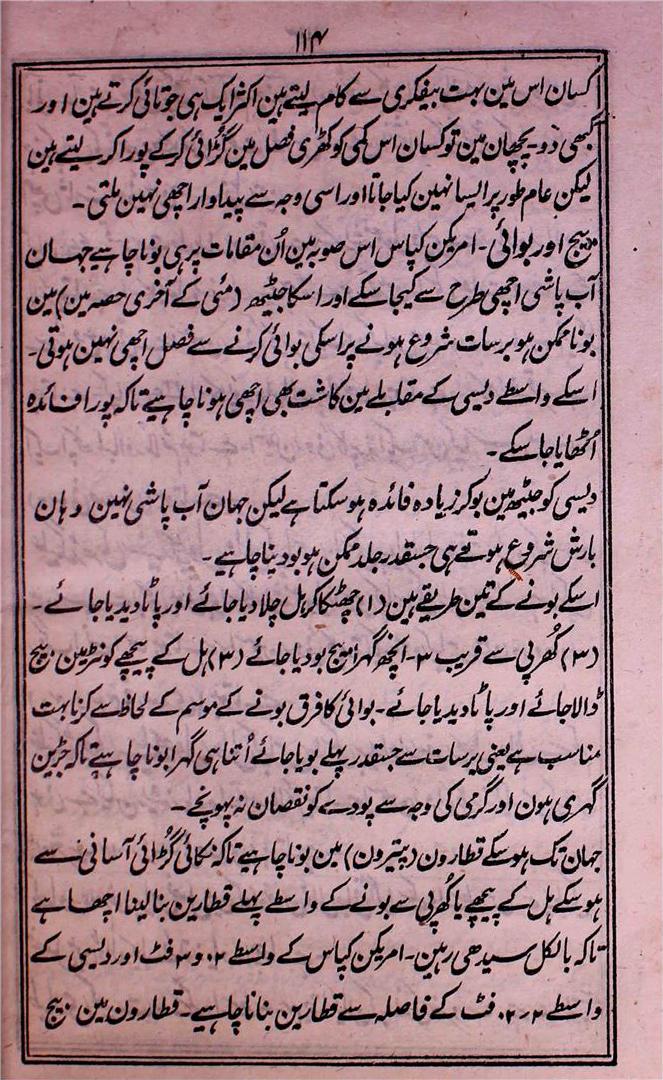 ۱۱۴
کسان اس مین بہت بیفکری سے کام لیتے ہین اکثر ایک ہی جوتائی کرتے ہین اور
کبھی دو۔ پچھان مین تو کسان اس کمی کو کھڑی فصل مین گڑائی کر کے پورا کر لیتے ہین
لیکن عام طور پر ایسا نہین کیا جاتا اور اسی وجہ سے پیداوار اچھی نہین ملتی۔
بیج اور بوائی۔ امریکن کپاس اس صوبہ مین اُن مقامات پر ہی بونا چاہیے جہان
آب پاشی اچھی طرح سے کیجا سکے اور اسکا جیٹھ (مئی کے آخری حصہ مین) مین
بونا ممکن ہو برسات شروع ہونے پر اسکی بوائی کرنے سے فصل اچھی نہین ہوتی۔
اسکے واسطے دیسی کے مقابلے مین کاشت بھی اچھی ہونا چاہیے تاکہ پورا فائدہ
اُٹھایا جا سکے۔
دیسی کو جیٹھ مین بو کر زیادہ فائدہ ہو سکتا ہے لیکن جہان آب پاشی نہین وہان
بارش شروع ہوتے ہی جسقدر جلد ممکن ہو بو دینا چاہیے۔
اسکے بونے کے تین طریقے ہین (۱) چھٹکا کر ہل چلا دیا جائے اور پاٹا دیدیا جائے۔
(۳) کُھرپی سے قریب ۳۔ انچھ گہرا بیج بو دیا جائے (۳) ہل کے پیچھے کونڑ مین بیج
ڈالا جائے اور پاٹا دیدیا جائے۔ بوائی کا فرق بونے کے موسم کے لحاظ سے کرنا بہت
مناسب ہے یعنی برسات سے جسقدر پہلے بویا جائے اُتنا ہی گہرا بونا چاہیے تاکہ جڑین
گہری ہون اور گرمی کی وجہ سے پودے کو نقصان نہ پہونچے۔
جہان تک ہو سکے قطارون (پنتیرون) مین بونا چاہیے تاکہ نکائی گڑائی آسانی سے
ہو سکے ہل کے پیچھے یا کُھرپی سے بونے کے واسطے پہلے قطارین بنا لینا اچھا ہے
تاکہ بالکل سیدھی رہین۔ امریکن کپاس کے واسطے ۲۰ و ۳ فٹ اور دیسی کے
واسطے ۲۔۲۰ فٹ کے فاصلہ سے قطارین بنانا چاہیے۔ قطارون مین بیج